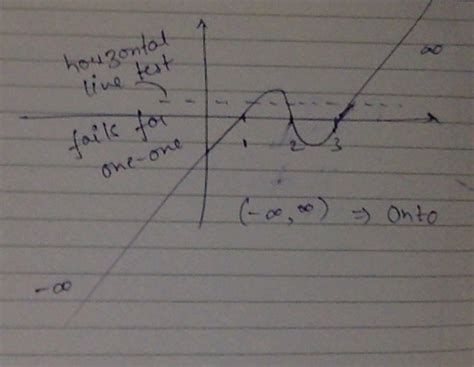 horizontal
line test
fails for
one-one
∞
1 2 3
(-∞, ∞) ⇒ Onto
-∞